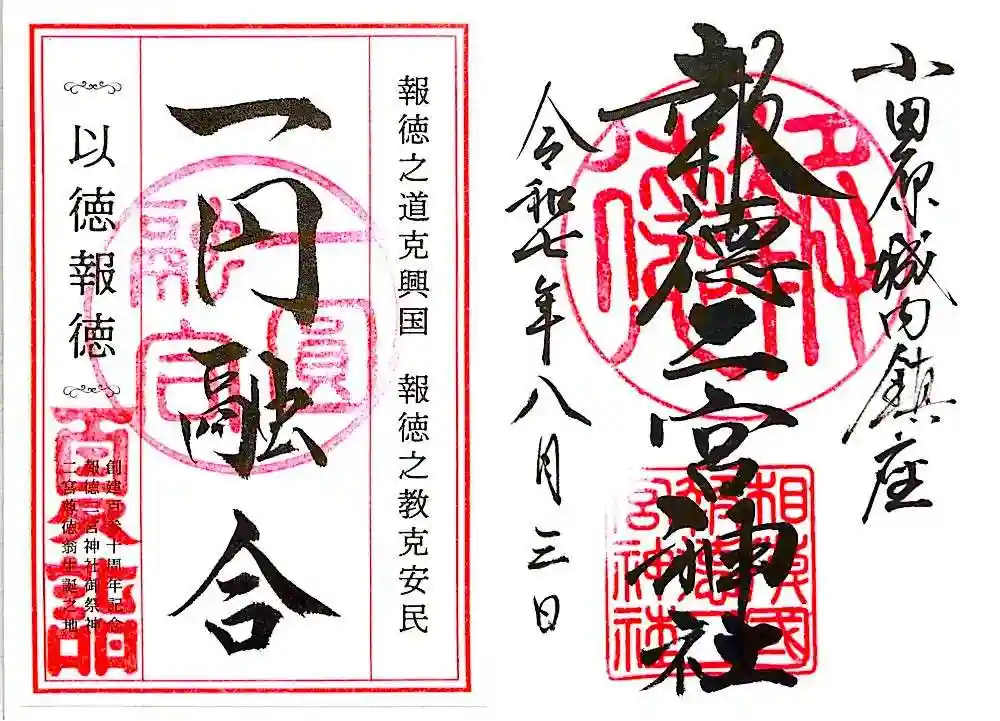 小田原城内鎮座
報徳二宮神社
令和七年八月三日
相模國
報徳二
宮神社
報徳之道克興国　報徳之教克安民
一円融合
以徳報徳
報徳二宮神社御祭神
二宮尊徳翁生誕之地